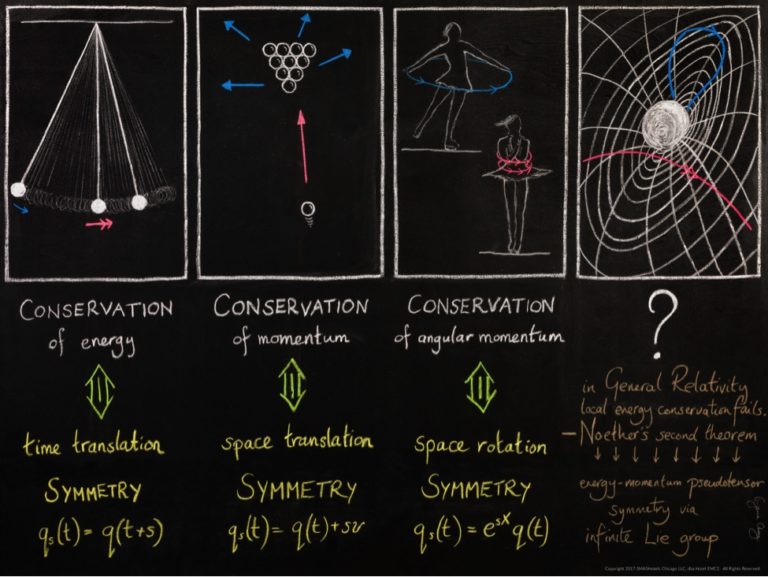 CONSERVATION
of energy
time translation
SYMMETRY
qₛ(t) = q(t+s)
CONSERVATION
of momentum
space translation
SYMMETRY
qₛ(t) = q(t)+sv
CONSERVATION
of angular momentum
space rotation
SYMMETRY
qₛ(t) = eˢˣ q(t)
?
in GENERAL RELATIVITY
local energy conservation fails.
– NOETHER'S second theorem
↓ ↓ ↓ ↓ ↓ ↓ ↓
energy-momentum pseudotensor
symmetry via
infinite Lie group